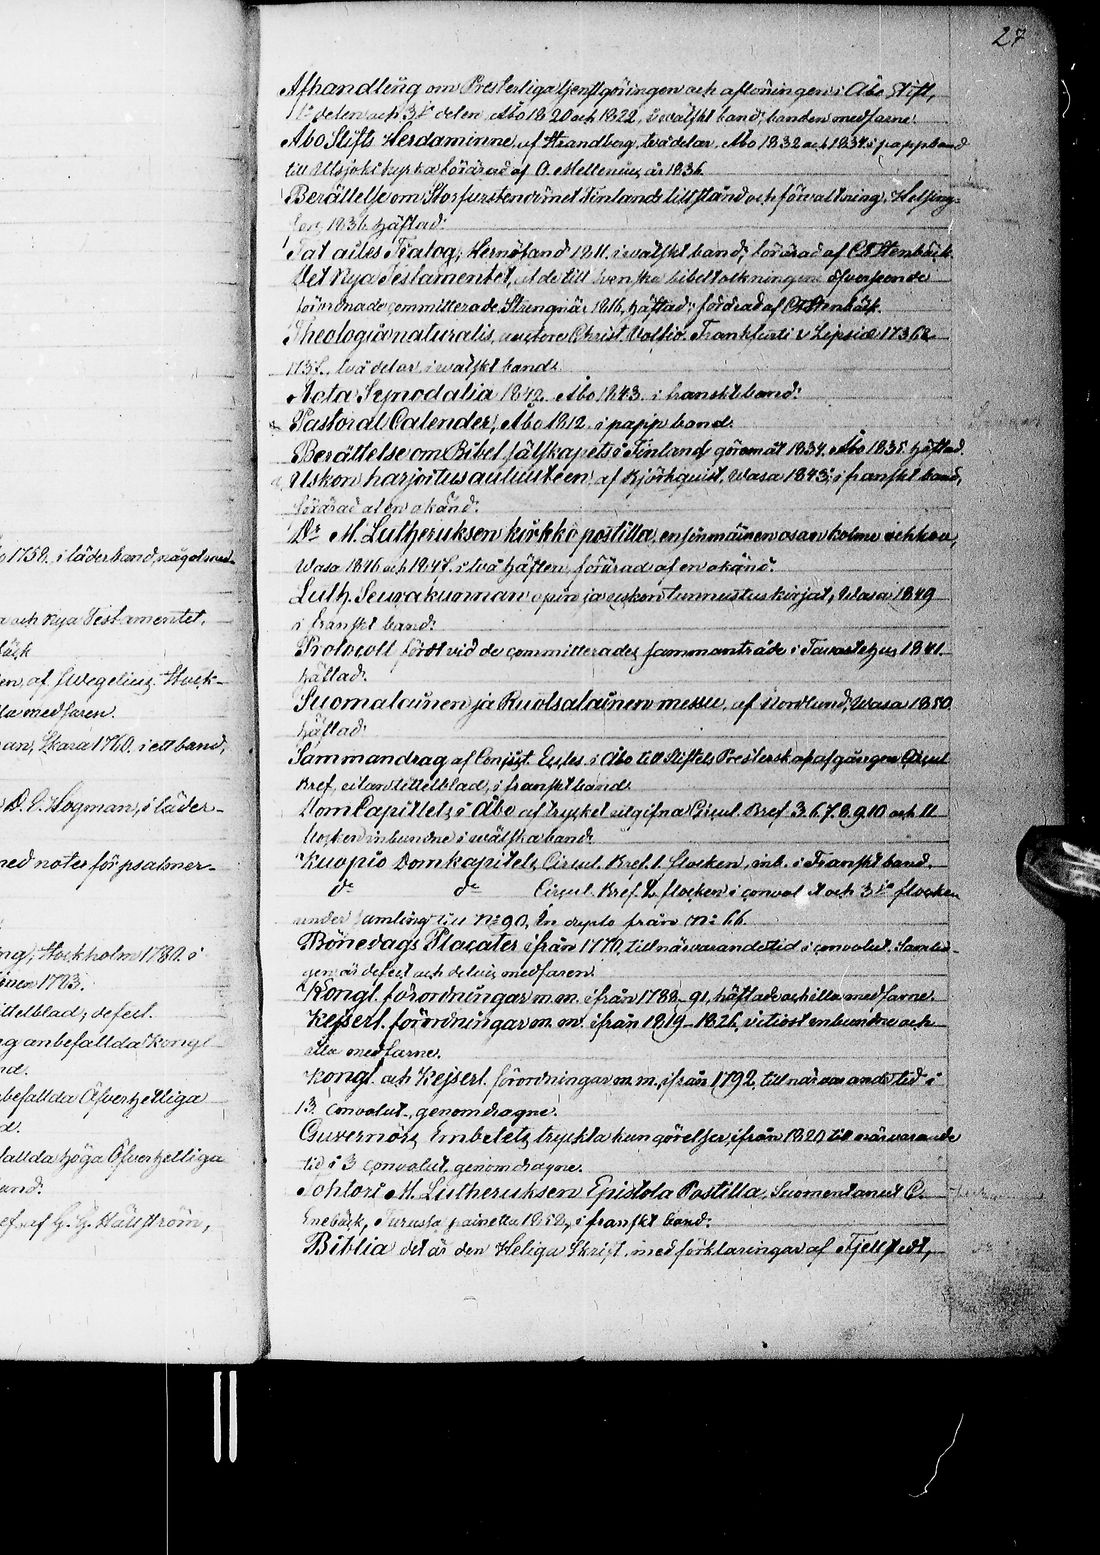 o 1758. i läderband, något med-
a och Nya Testamentet,
bäck
en, af Wegelius. Stock-
lla medfaren.
an, Skara 1760. i ett band,
D. S. Hogman, i läder-
med noter för psalmer-
ng, Stockholm 1780. i
1793.
ittelblad, defect.
g anbefallda Kongl
nd.
befallda Öfverhetliga
d.
fallda höga Öfverhetliga
and.
ef af G. G. Hällström,
27
Afhandling om Presterliga tjenstgöringen och aflöningen i Åbo Stift,
1sta delen och 3je delen Åbo 1820 och 1822, i wälskt band; banden medfarne.
Åbo Stifts Herdaminne, af Strandberg, två delar, Åbo 1832 och 1834 i pappband
till Utsjoki kyrka förärad af A. Mellenius år 1836.
Berättelse om Storfurstendömet Finlands tillstånd och förvaltning, Helsing-
fors 1836. häftad.
Hernösand 1811. i wälskt band; förärad af Stenbäck.
Det Nya Testamentet, af de till Svenska bibeltolkningens öfverseende
förordnade committerade. Strengnäs 1816, häftad; förärad af Stenbäck.
Theologia naturalis, autore Christ. Volfio. Frankfurti & Lipsiæ 1736 &
1737. två delar, i wälskt band.
Acta Synodalia 1842. Åbo 1843. i franskt band.
Pastoral Calender, Åbo 1812. i papp band.
Berättelse om Bibel Sällskapets i Finland göromål 1834. Åbo 1835. häftad.
Uskon harjoitus autuuteen, af Björkquist, Wasa 1843; i franskt band,
förärad af en okänd.
Dr M. Lutheruksen kirkko postilla, ensimäinen osan kolme vihkoa,
Wasa 1846 och 1847. i två häften, förärad af en okänd.
Luth. Seurakunnan opin ja uskon tunnustus kirjat, Wasa 1849
i franskt band.
Protocoll fördt vid de committerades sammanträde i Tavastehus 1841.
häftad.
Suomalainen ja Ruotsalainen messu, af Nordlund, Wasa 1850.
häftad.
Sammandrag af Consist. Eccles. i Åbo till Stiftets Presterskap afgångna Circul
Bref, utan tittelblad, i franskt band.
DomCapitlets i Åbo af trycket utgifna Circul. Bref 3. 6. 7. 8. 9. 10 och 11
flocken inbundne i wälska band.
Kuopio Domkapitels Circul. Bref. 1. flocken, inb. i Franskt band.
do do Circul. Bref. 2. flocken i convolut och 3je flocken
under samling till No 90. In duplo från No 66.
Bönedags Placater ifrån 1770, till närvarande tid i convolut. Samlin-
gen är defect och delvis medfaren.
Kongl. förordningar m.m. ifrån 1788–91, häftade och illa medfarne.
Kejserl. förordningar m.m. ifrån 1819–1826, vitiost inbundne och
illa medfarne.
Kongl. och Kejserl. förordningar m.m. ifrån 1792, till närvarande tid i
13. convolut, genomdragne.
Guvernörs Embetets tryckta kungörelser, ifrån 1820 till närvarande
tid i 3 convolut, genomdragne.
Tohtori M. Lutheruksen Epistola Postilla, Suomentanut C.
Enebäck, Turussa painettu 1852, i franskt band.
Biblia det är den Heliga Skrift, med förklaringar af Fjellstedt,